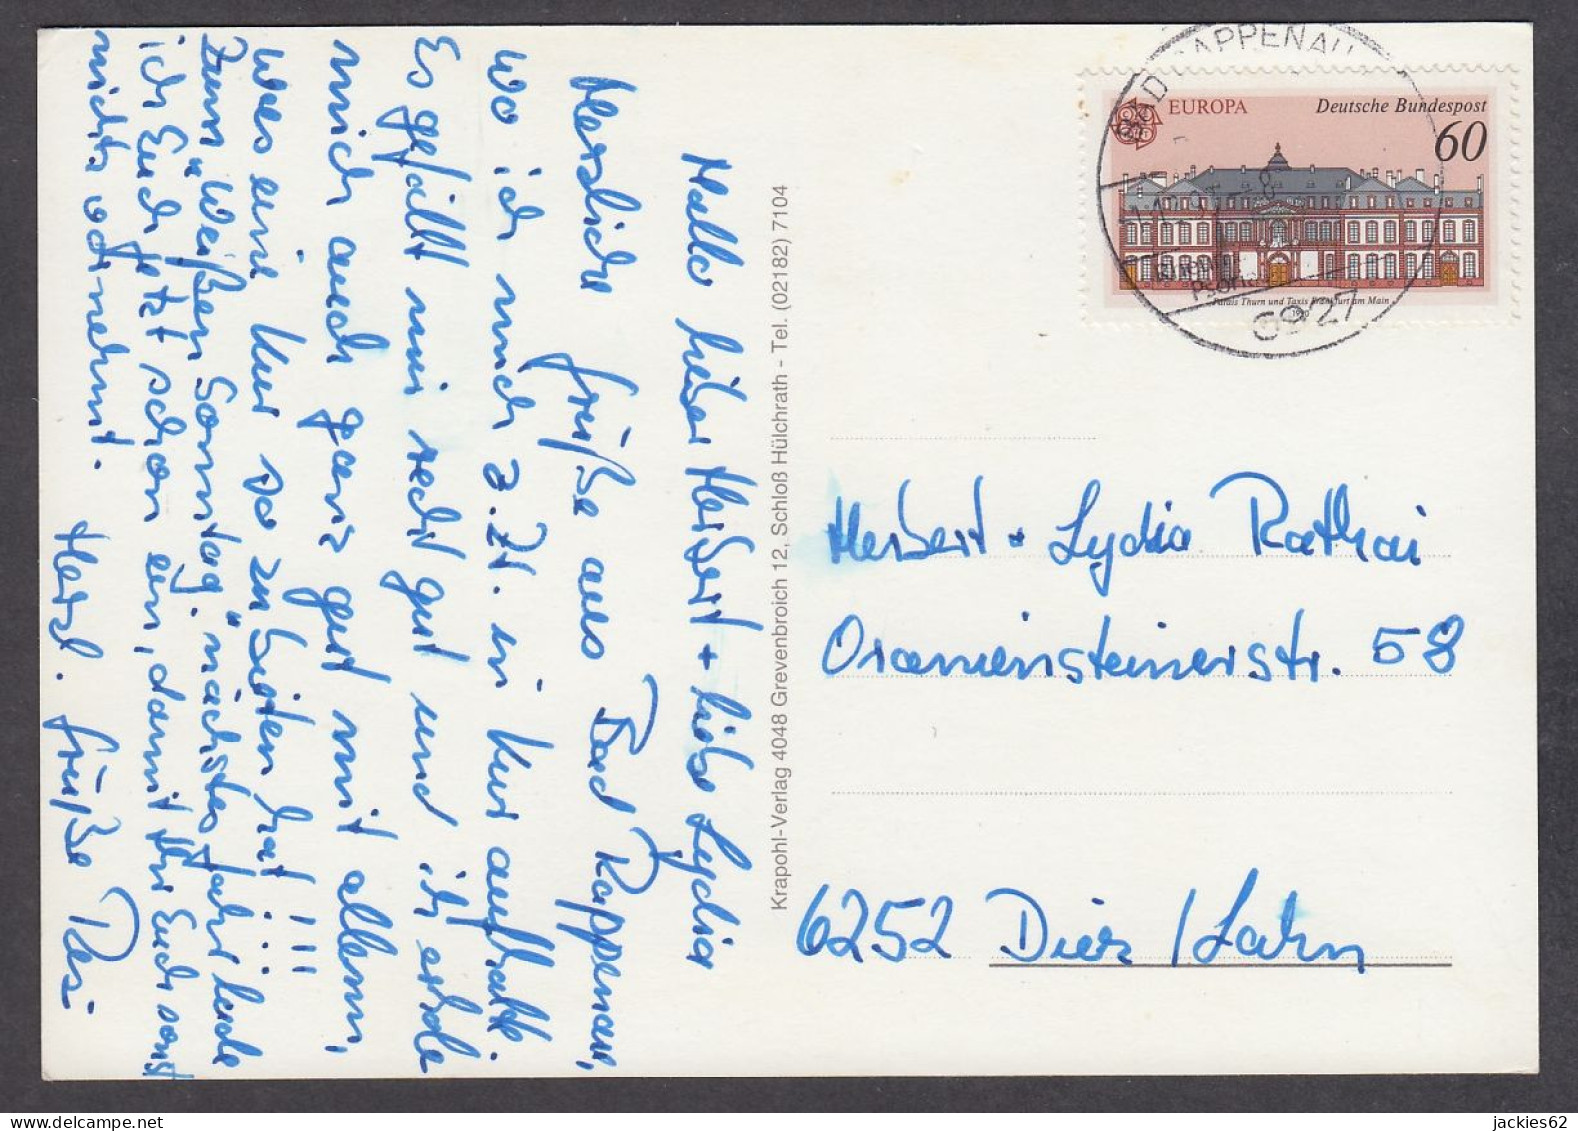 Hallo lieber Herbert + liebe Lydia
Herzliche Grüße aus Bad Rappenau,
wo ich mich z. Zt. in Kur aufhalte.
Es gefällt mir recht gut und ich erhole
mich auch ganz gut mit allem,
was eine Kur so zu bieten hat !!!
Zum "Weißen Sonntag" nächstes Jahr lade
ich Euch jetzt schon ein, damit Ihr Euch sonst
nichts vornehmt.
Herzl. Grüße Resi
Krapohl-Verlag 4048 Grevenbroich 12, Schloß Hülchrath - Tel. (02182) 7104
BAD RAPPENAU
EUROPA Deutsche Bundespost
60
Palais Thurn und Taxis Frankfurt am Main
1990
6927
Herbert + Lydia Rathai
Oraniensteinerstr. 58
6252 Diez / Lahn
jackies62